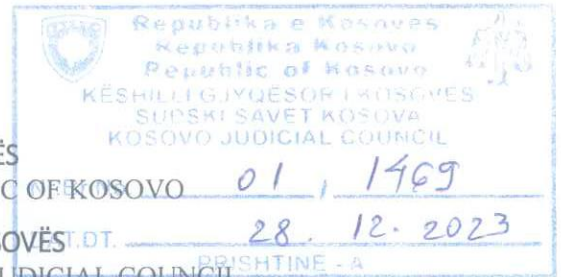 Republika e Kosovës
Republika Kosova
Republic of Kosovo
KËSHILLI GJYQËSOR I KOSOVËS
SUDSKI SAVET KOSOVA
KOSOVO JUDICIAL COUNCIL
ËS
C OF KOSOVO 01, 1469
SOVËS DT. 28. 12. 2023
PRISHTINË - A
JUDICIAL COUNCIL